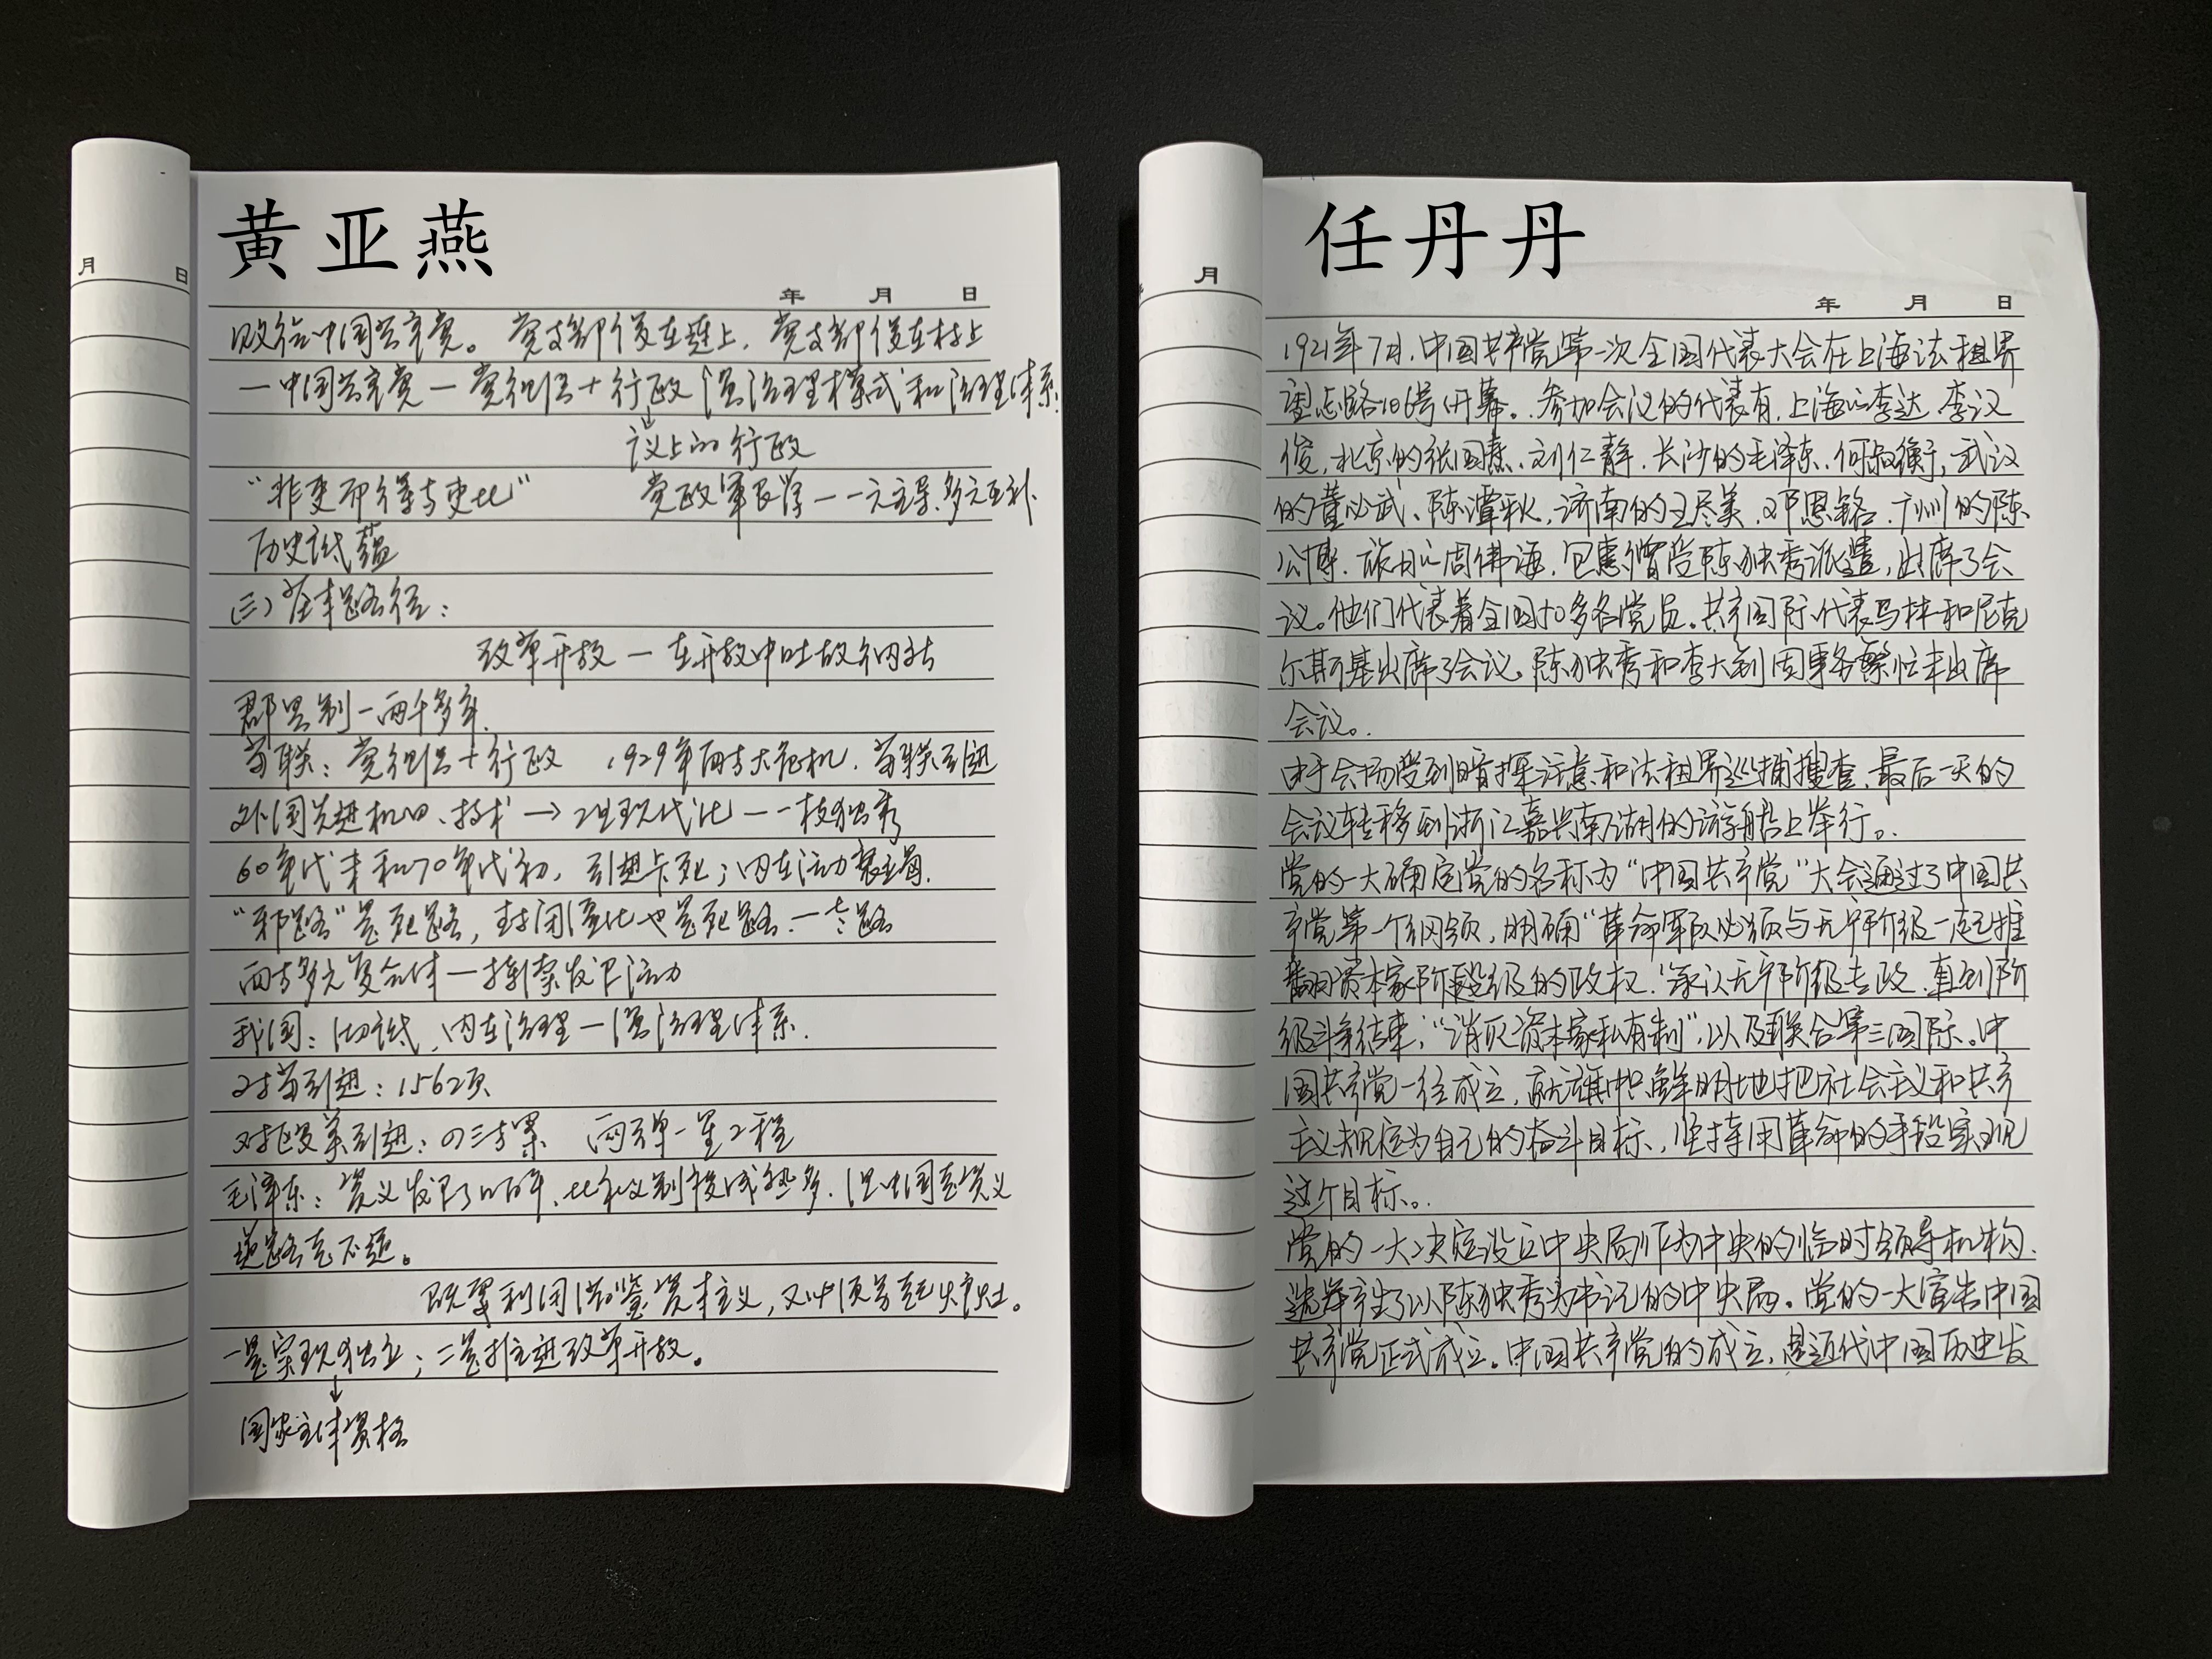 黄亚燕
月 日
年 月 日
败给中国共产党。 党支部建在连上，党支部建在村上
一中国共产党一党组织＋行政 治理模式和治理体系
议上的行政
党政军民学——一元主导、多元互补
历史
(三)基本路径：
改革开放一在开放中吐故纳新
郡县制一两千多年.
苏联：党组织＋行政 1929年西方大危机.苏联引进
外国先进机口、技术→ 现代化——枝独秀
60年代末和70年代初，引进卡死；内在活力衰竭.
“邪路”是死路，封闭僵化也是死路.一老路
西方多元复合体一 发展活力
我国： 内在治理一 治理体系.
对苏引进：156项
对欧美引进：四三方案 两弹一星工程
毛泽东：资义发展了 百年. 但中国走资义
道路走不通。
既要利用借鉴资本主义，又必须另起炉灶。
一是实现独立；二是推进改革开放。
↓
国家主体资格
任丹丹
月
年 月 日
1921年7月.中国共产党第一次全国代表大会在上海法租界
望志路106号开幕。.参加会议的代表有.上海的李达.李汉
俊，北京的张国焘、刘仁静.长沙的毛泽东.何叔衡，武汉
的董必武、陈潭秋，济南的王尽美.邓恩铭.广州的陈
公博.旅日的周佛海.包惠僧受陈独秀派遣，出席了会
议。他们代表着全国50多名党员。共产国际代表马林和尼克
尔斯基出席了会议。陈独秀和李大钊因事务繁忙未出席
会议。.
由于会场受到暗探注意和法租界巡捕搜查.最后一天的
会议转移到浙江嘉兴南湖的游船上举行。.
党的一大确定党的名称为“中国共产党”大会通过了中国共
产党第一个纲领，明确“革命军队必须与无产阶级一起推
翻资本家阶级的政权.”承认无产阶级专政.直到阶
级斗争结束；“消灭资本家私有制”，以及联合第三国际。中
国共产党一经成立，就旗帜鲜明地把社会主义和共产
主义规定为自己的奋斗目标，坚持用革命的手段实现
这个目标。.
党的一大决定设立中央局作为中央的临时领导机构.
选举产生了以陈独秀为书记的中央局。党的一大宣告中国
共产党正式成立。中国共产党的成立，是近代中国历史发